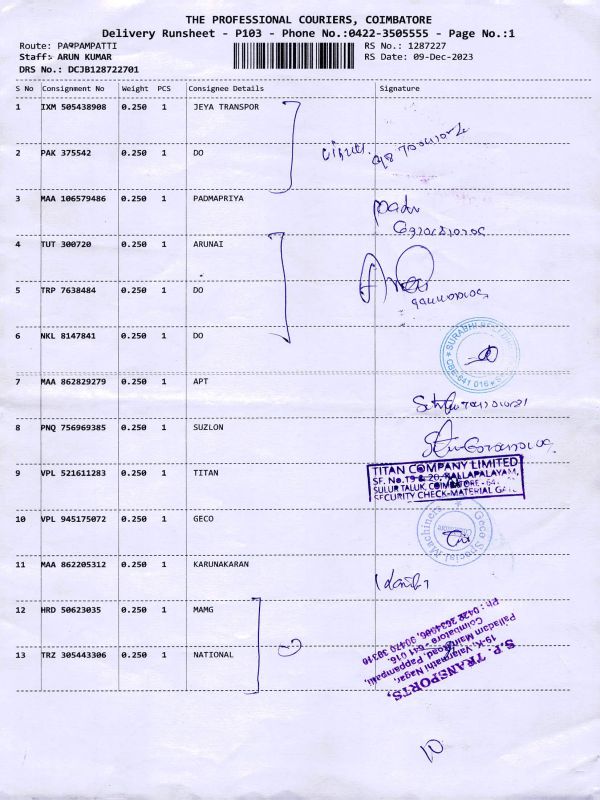 THE PROFESSIONAL COURIERS, COIMBATORE
Delivery Runsheet - P103 - Phone No.:0422-3505555 - Page No.:1
Route: PAPPAMPATTI
RS No.: 1287227
Staff: ARUN KUMAR
RS Date: 09-Dec-2023
DRS No.: DCJB128722701
S No Consignment No Weight PCS Consignee Details Signature
1 IXM 505438908 0.250 1 JEYA TRANSPOR
2 PAK 375542 0.250 1 DO
3 MAA 106579486 0.250 1 PADMAPRIYA
Padu
4 TUT 300720 0.250 1 ARUNAI
5 TRP 7638484 0.250 1 DO
6 NKL 8147841 0.250 1 DO
CBE-641 016
7 MAA 862829279 0.250 1 APT
8 PNQ 756969385 0.250 1 SUZLON
9 VPL 521611283 0.250 1 TITAN
TITAN COMPANY LIMITED
SF. No.19 & 20, KALLAPALAYAM,
SULUR TALUK, COIMBATORE - 64
SECURITY CHECK-MATERIAL
10 VPL 945175072 0.250 1 GECO
Geco Special Machines
Coimbatore
11 MAA 862205312 0.250 1 KARUNAKARAN
12 HRD 50623035 0.250 1 MAMG
13 TRZ 305443306 0.250 1 NATIONAL
S.P. TRANSPORTS,
Nagar,
Palladam Main Road, Pappampatti,
Coimbatore - 641 016.
10